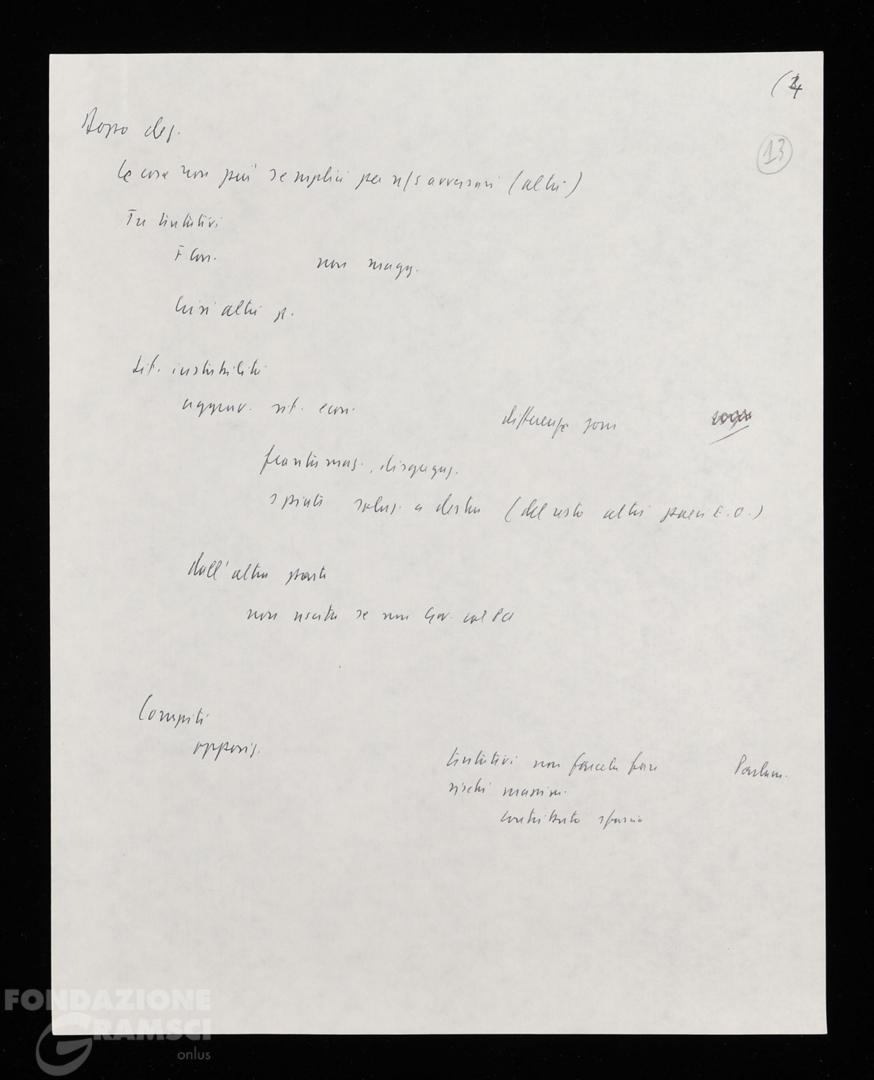 (4
13
Dopo dez.
Le cose non più semplici per n/s avversari (altri)
Tre tentativi
F Con. non magg.
Crisi altri p.
Sit. instabilità
aggrav. sit. econ. differenze
frantumaz., disgregaz.
spinte soluz. a destra (del resto altri paesi E.O.)
dall'altra parte
non uscita se non Gov. col PCI
Compiti
opposiz.
tentativi non farcela fare Parlam.
rischi massim.
contributo
FONDAZIONE
GRAMSCI
onlus